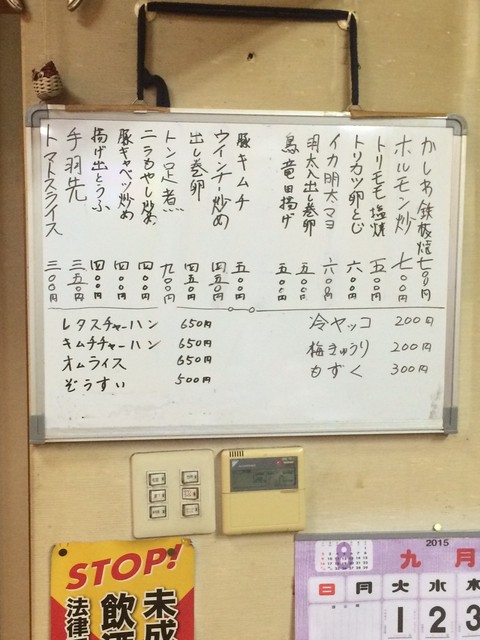 かしわ鉄板焼七〇〇円
ホルモン炒七〇〇円
トリモモ塩焼五〇〇円
トリカツ卵とじ六〇〇円
イカ明太マヨ六〇〇円
明太入出し巻卵五〇〇円
鳥竜田揚げ五〇〇円
豚キムチ五〇〇円
ウインナー炒め四五〇円
出し巻卵四五〇円
トン足煮九〇〇円
ニラもやし炒め四〇〇円
豚キャベツ炒め四〇〇円
揚げ出とうふ四〇〇円
手羽先三五〇円
トマトスライス三〇〇円
レタスチャーハン 650円
キムチチャーハン 650円
オムライス 650円
ぞうすい 500円
冷ヤッコ 200円
梅きゅうり 200円
もずく 300円
STOP!
未成
飲酒
法律
2015
8
九月
日 月 火 水 木
1 2 3